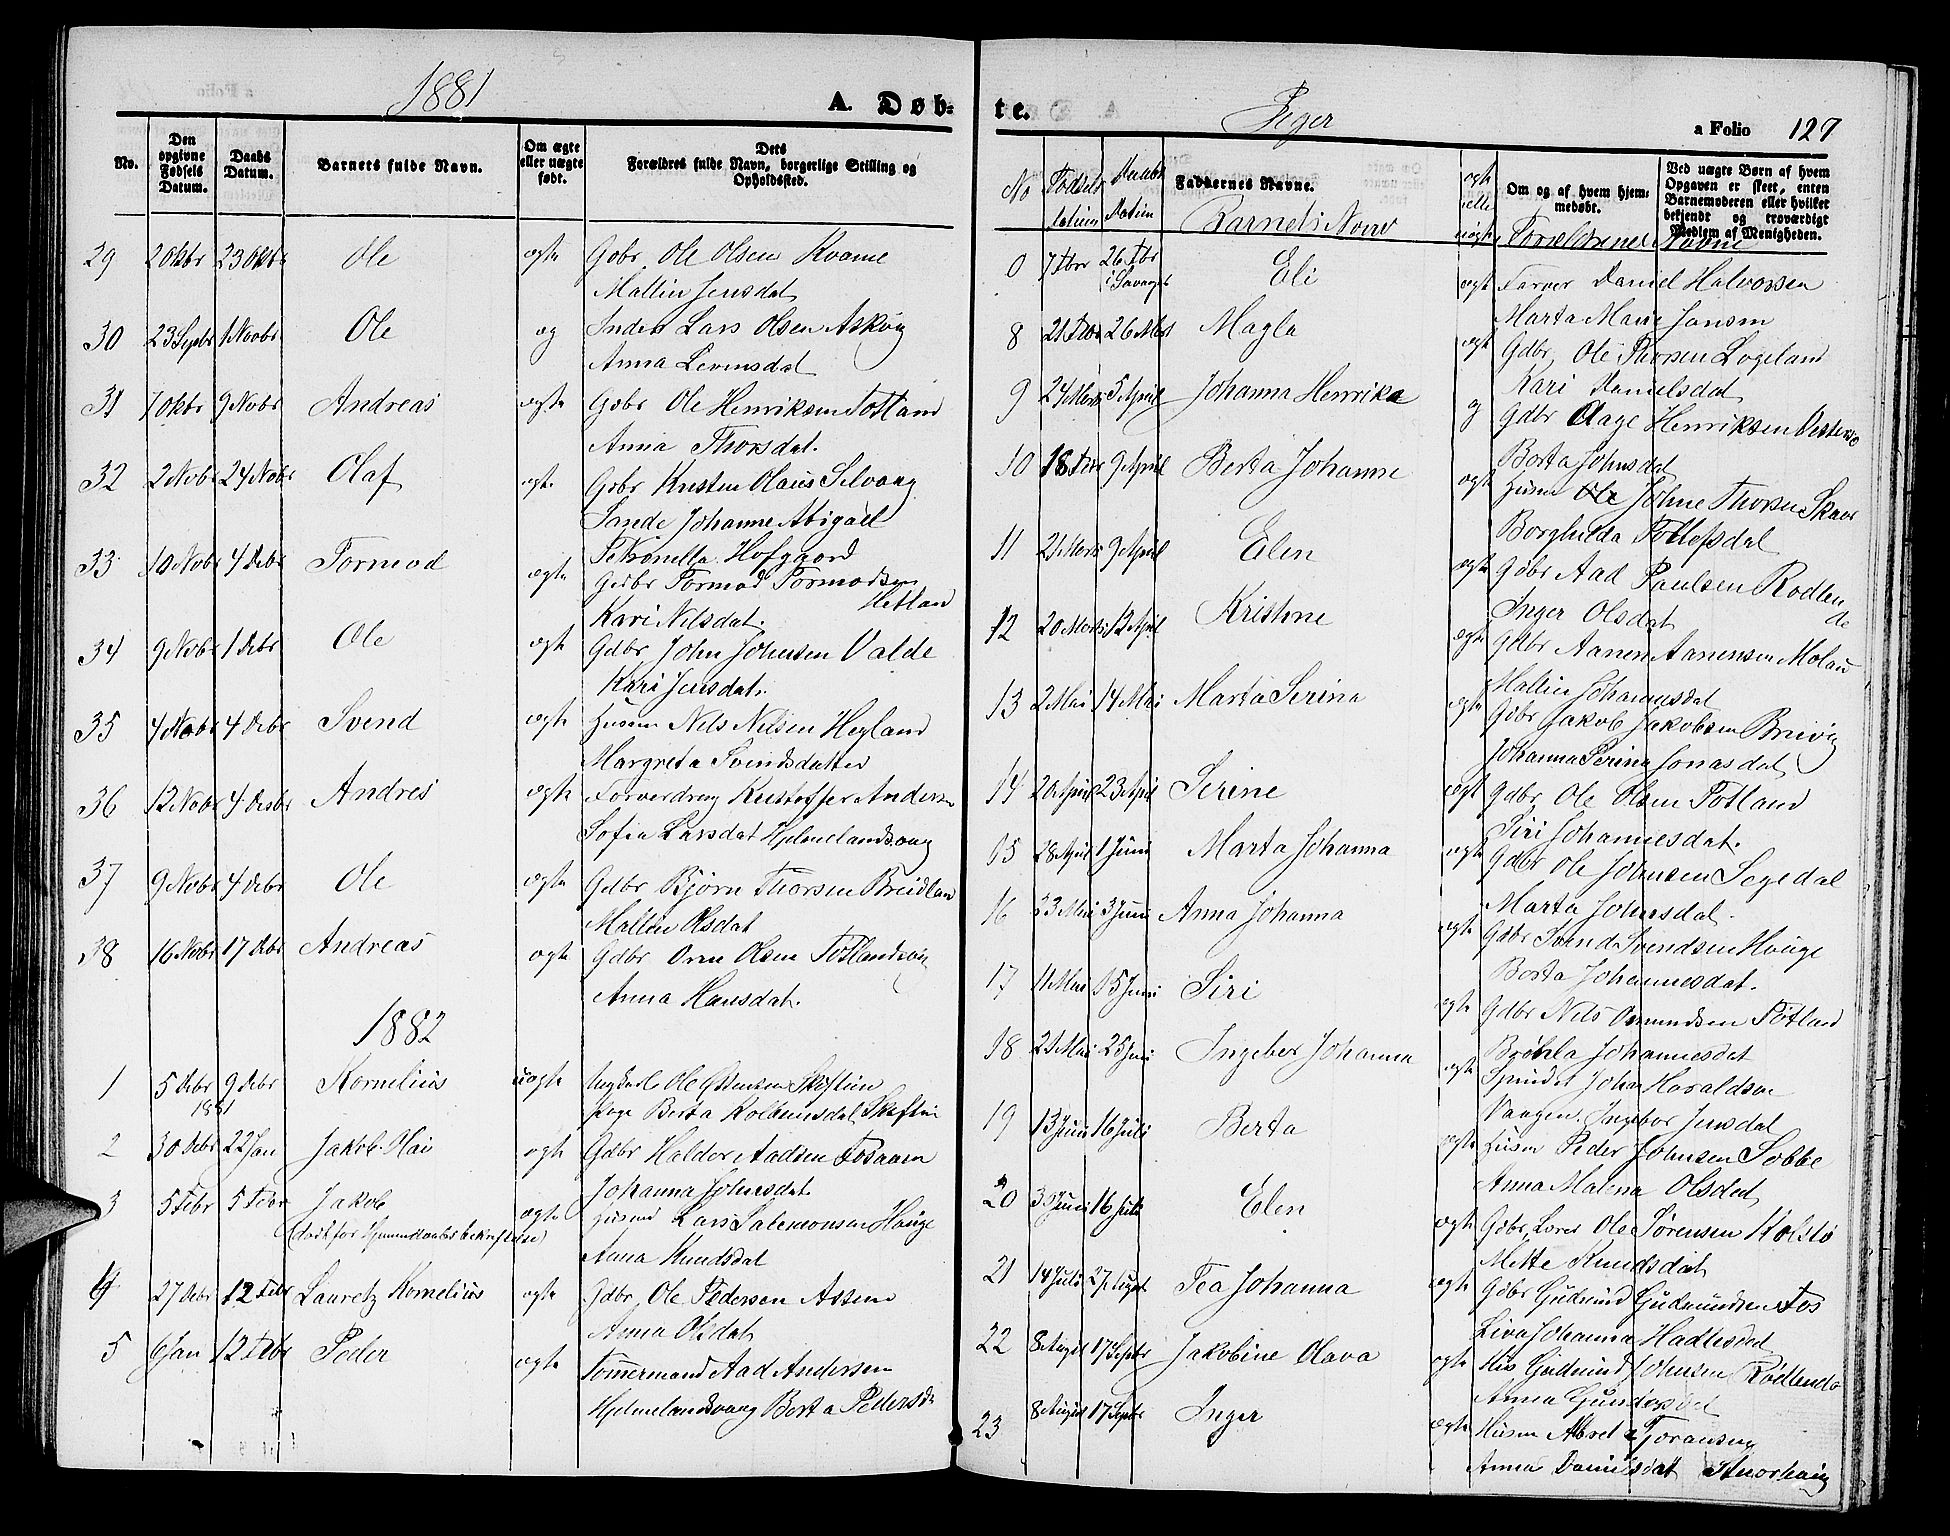 1881
A. Døb-
No.
Den opgivne Fødsels Datum.
Daabs Datum.
Barnets fulde Navn.
Om ægte eller uægte født.
Dets Forældres fulde Navn, borgerlige Stilling og Opholdssted.
29 2 Oktbr 23 Oktbr Ole ægte Gdbr Ole Olsen Kvame
Mallin Jensdat.
30 23 Sepbr 1 Novbr Ole Lars Olsen
Anna
31 7 Oktbr 9 Novbr Andreas ægte Gdbr Ole Henriksen Totland
Anna Thorsdat.
32 2 Novbr 24 Novbr Olaf ægte Gdbr Kristen Olaus Selvaag
Sande Johanne Abigael
Petronella Hofgaard
33 10 Novbr 4 Debr Tormod ægte Gdbr Tormod Tormodsen
Hetland
Kari Nilsdat.
34 9 Novbr 1 Debr Ole ægte Gdbr John Johnsen Valde
Kari Jensdat.
35 4 Novbr 4 Debr Svend ægte Husm Nils Nilsen Hegland
Margreta Svendsdatter
36 12 Novbr 4 Desbr Andres ægte Kristoffer Andersen
Sofia Larsdat Hjelmelandsvaag
37 9 Novbr 4 Debr Ole ægte Gdbr Bjørn Thorsen Breidland
Mallin Olsdat
38 16 Novbr 17 Debr Andreas ægte Gdbr Orm Olsen Totlandsvig
Anna Hansdat.
1882
1 5 Debr 1881 9 Debr Kornelius uægte Ungkarl Ole
Pige Berta Kolbensdat
2 30 Debr 22 Jan Jakob ægte Gdbr Haldor Aadsen Fosaaen
Johanna Johnsdat.
3 5 Febr 5 Febr Jakob ægte Husmd Lars Salemonsen Hauge
(Død før
Anna Knudsdat
4 27 Debr 12 Febr Lauretz Kornelius ægte Gdbr Ole Pedersen Assen
Anna Olsdat
5 6 Jan 12 Febr Peder ægte Tømmermand Aad Andersen
Hjelmelandsvaag Berta Pedersd
te.
Piger
a Folio 127
No Fødsels datum Daabs datum
Fadernes Navne.
Barnets Navn
ægte eller uægte
Om og af hvem hjemmedøbt.
Ved uægte Børn af hvem Opgaven er skeet, enten Barnemoderen eller hvilket bekjendt og troværdigt Medlem af Menigheden.
Forældrenes Navne
7 Fbr 26 Fbr Eli ægt Farver Daniel Halvorsen
Marta Marie Jonsen
8 21 Febr 26 Mars Magla ægt Gdbr Ole Thorsen Logeland
Kari Danielsdat
9 24 Marts 5 April Johanna Henrika Gdbr Aage Henriksen
Berta Johnsdat
10 18 Febr 9 April Berta Johanne ægt Husm Johne Thorsen
Borghilda Tollefsdal
11 2 Marts 9 April Elen ægte Gdbr Aad Paulsen Rødlende
Inger Olsdat
12 20 Marts 12 April Kristine ægte Gdbr Aanen Aanensen Molau
Mallin Johannesdat
13 2 Mai 14 Mai Marta Serina ægte Gdbr Jakob Jakobsen Breivig
Johanna Serina Jonasdat
14 20 April 23 April Serine ægt Gdbr Ole Olsen Totland
Siri Johannesdat.
15 28 April 1 Juni Marta Johanna ægte Gdbr Ole Johnsen Segedal
Marta Johnsdat.
16 Mai 3 Juni Anna Johanna ægte Gdbr Svend Svendsen Hauge
Berta Johannesdat.
17 11 Mai 15 Juni Siri ægte Gdbr Nils Osmundsen Totland
Johannesdat
18 21 Mai 25 Juni Ingeber Johanna ægte John Haraldsen
Vaagen. Ingebor Jensdal
19 13 Juni 16 Juli Berta ægte Husm Peder Johnsen Sobbe
Anna Malena Olsdat
20 3 Juni 16 Juli Elen ægte Gdbr Ole Sørensen Kolstø
Mette Knudsdat
21 14 Juli 27 August Tea Johanna ægte Gdbr Gudmund Gudmundsen Fos
Liva Johanna
22 8 August 17 Septbr Jakobine Olava ægte Gudmund Johnsen Rødlende
Anna Gundersdat
23 8 August 17 Septbr Inger ægte Husm
Anna Danielsdatt